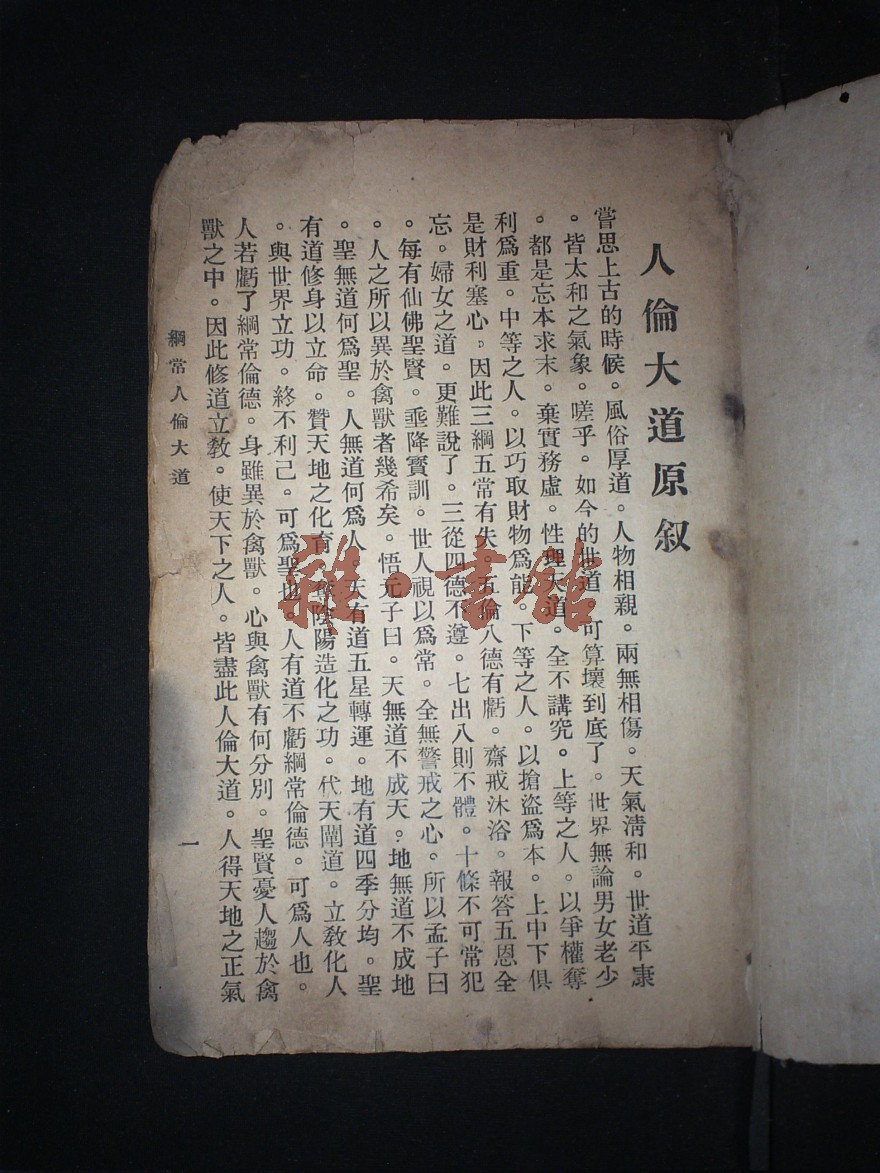 人倫大道原叙
嘗思上古的時候。風俗厚道。人物相親。兩無相傷。天氣淸和。世道平康
。皆太和之氣象。嗟乎。如今的世道。可算壞到底了。世界無論男女老少
。都是忘本求末。棄實務虛。性理大道。全不講究。上等之人。以爭權奪
利爲重。中等之人。以巧取財物爲能。下等之人。以搶盜爲本。上中下俱
是財利塞心。因此三綱五常有失。五倫八德有虧。齋戒沐浴。報答五恩全
忘。婦女之道。更難說了。三從四德不遵。七出八則不體。十條不可常犯
。每有仙佛聖賢。垂降寳訓。世人視以爲常。全無警戒之心。所以孟子曰
。人之所以異於禽獸者幾希矣。悟元子曰。天無道不成天。地無道不成地
。聖無道何爲聖。人無道何爲人。天有道五星轉運。地有道四季分均。聖
有道修身以立命。贊天地之化育。陰陽造化之功。代天闡道。立敎化人
。與世界立功。終不利己。可爲聖也。人有道不虧綱常倫德。可爲人也。
人若虧了綱常倫德。身雖異於禽獸。心與禽獸有何分別。聖賢憂人趨於禽
獸之中。因此修道立敎。使天下之人。皆盡此人倫大道。人得天地之正氣
綱常人倫大道
一
雜·書館